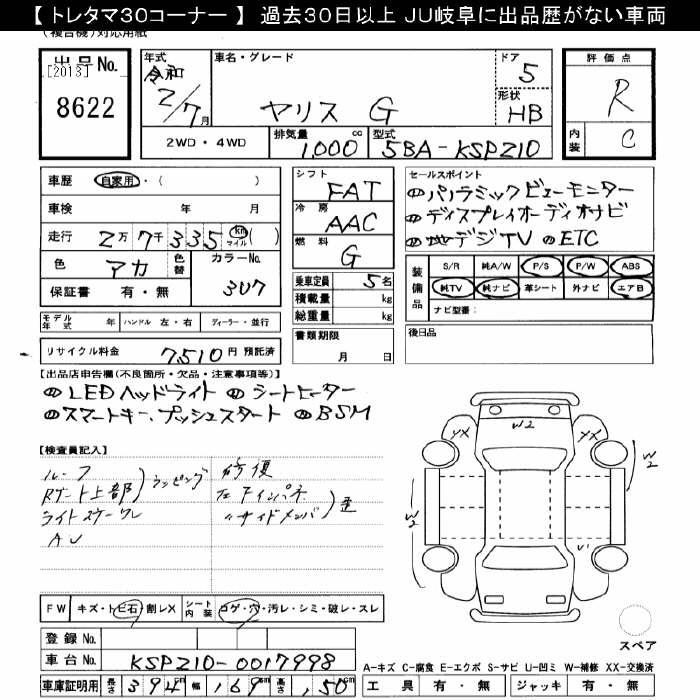 【トレタマ30コーナー】 過去30日以上 JU岐阜に出品歴がない車両
(複合機)対応用紙
出品No. [2013] 8622
年式 令和 2/7月
車名・グレード ヤリス G
ドア 5
形状 HB
評価点 R
内装 C
2WD・4WD
排気量 1,000 cc
型式 5BA-KSP210
車歴 自家用・( )
車検 年 月
走行 2万7千335 km マイル ( )
色 アカ 色替
カラーNo. 3U7
保証書 有・無
シフト FAT
冷房 AAC
燃料 G
乗車定員 5名
積載量 kg
総重量 kg
書類期限 月 日
セールスポイント
のパノラミックビューモニター
のディスプレイオーディオナビ
の地デジTV のETC
装備品 S/R 純A/W P/S P/W ABS
純TV 純ナビ 革シート 外ナビ エアB
ナビ型番:
モデル年式 年 ハンドル 左・右 ディーラー・並行
リサイクル料金 7510円 預託済
後日品
【出品店申告欄(不良箇所・欠品・注意事項等)】
のLEDヘッドライト のシートヒーター
のスマートキー、プッシュスタート のBSM
【検査員記入】
ルーフ
Rゲート上部 ラッピング
ライトスケーワレ
AU
修復
左Fインパネ
〃サイドメンバ 歪
YX W2 YX W2
W2 U1
FW キズ・トビ石・割レX シート内装 コゲ・穴・汚レ・シミ・破レ・スレ
スペア
登録No.
車台No. KSP210-0017998
A-キズ C-腐食 E-エクボ S-サビ U-凹ミ W-補修 XX-交換済
車庫証明用 長さ 394cm 幅 169cm 高さ 150cm
工具 有・無 ジャッキ 有・無